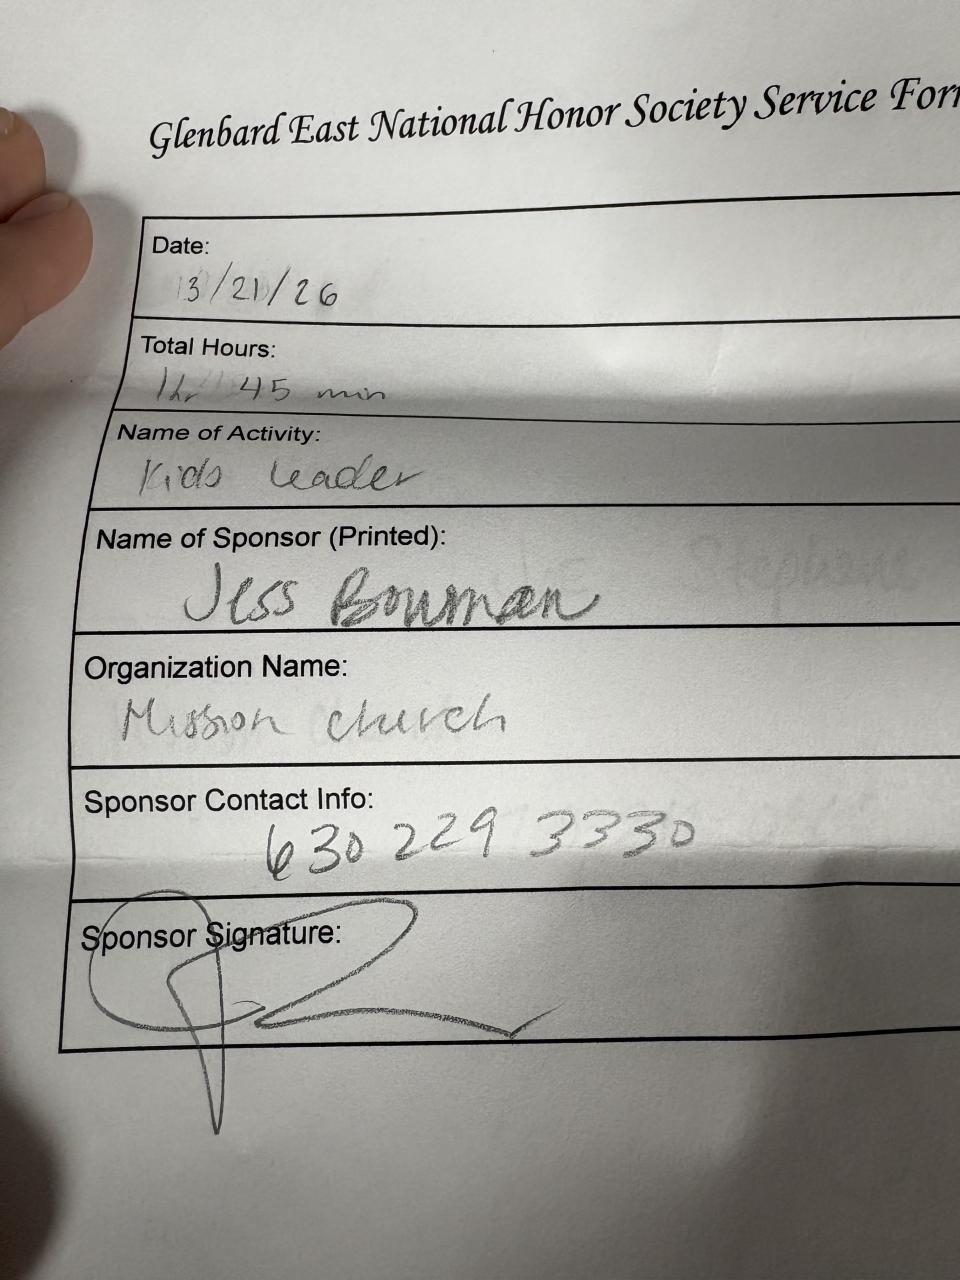 Glenbard East National Honor Society Service For
Date:
3/21/26
Total Hours:
1hr 45 min
Name of Activity:
Kids leader
Name of Sponsor (Printed):
Jess Bowman
Organization Name:
Mission church
Sponsor Contact Info:
630 229 3330
Sponsor Signature: